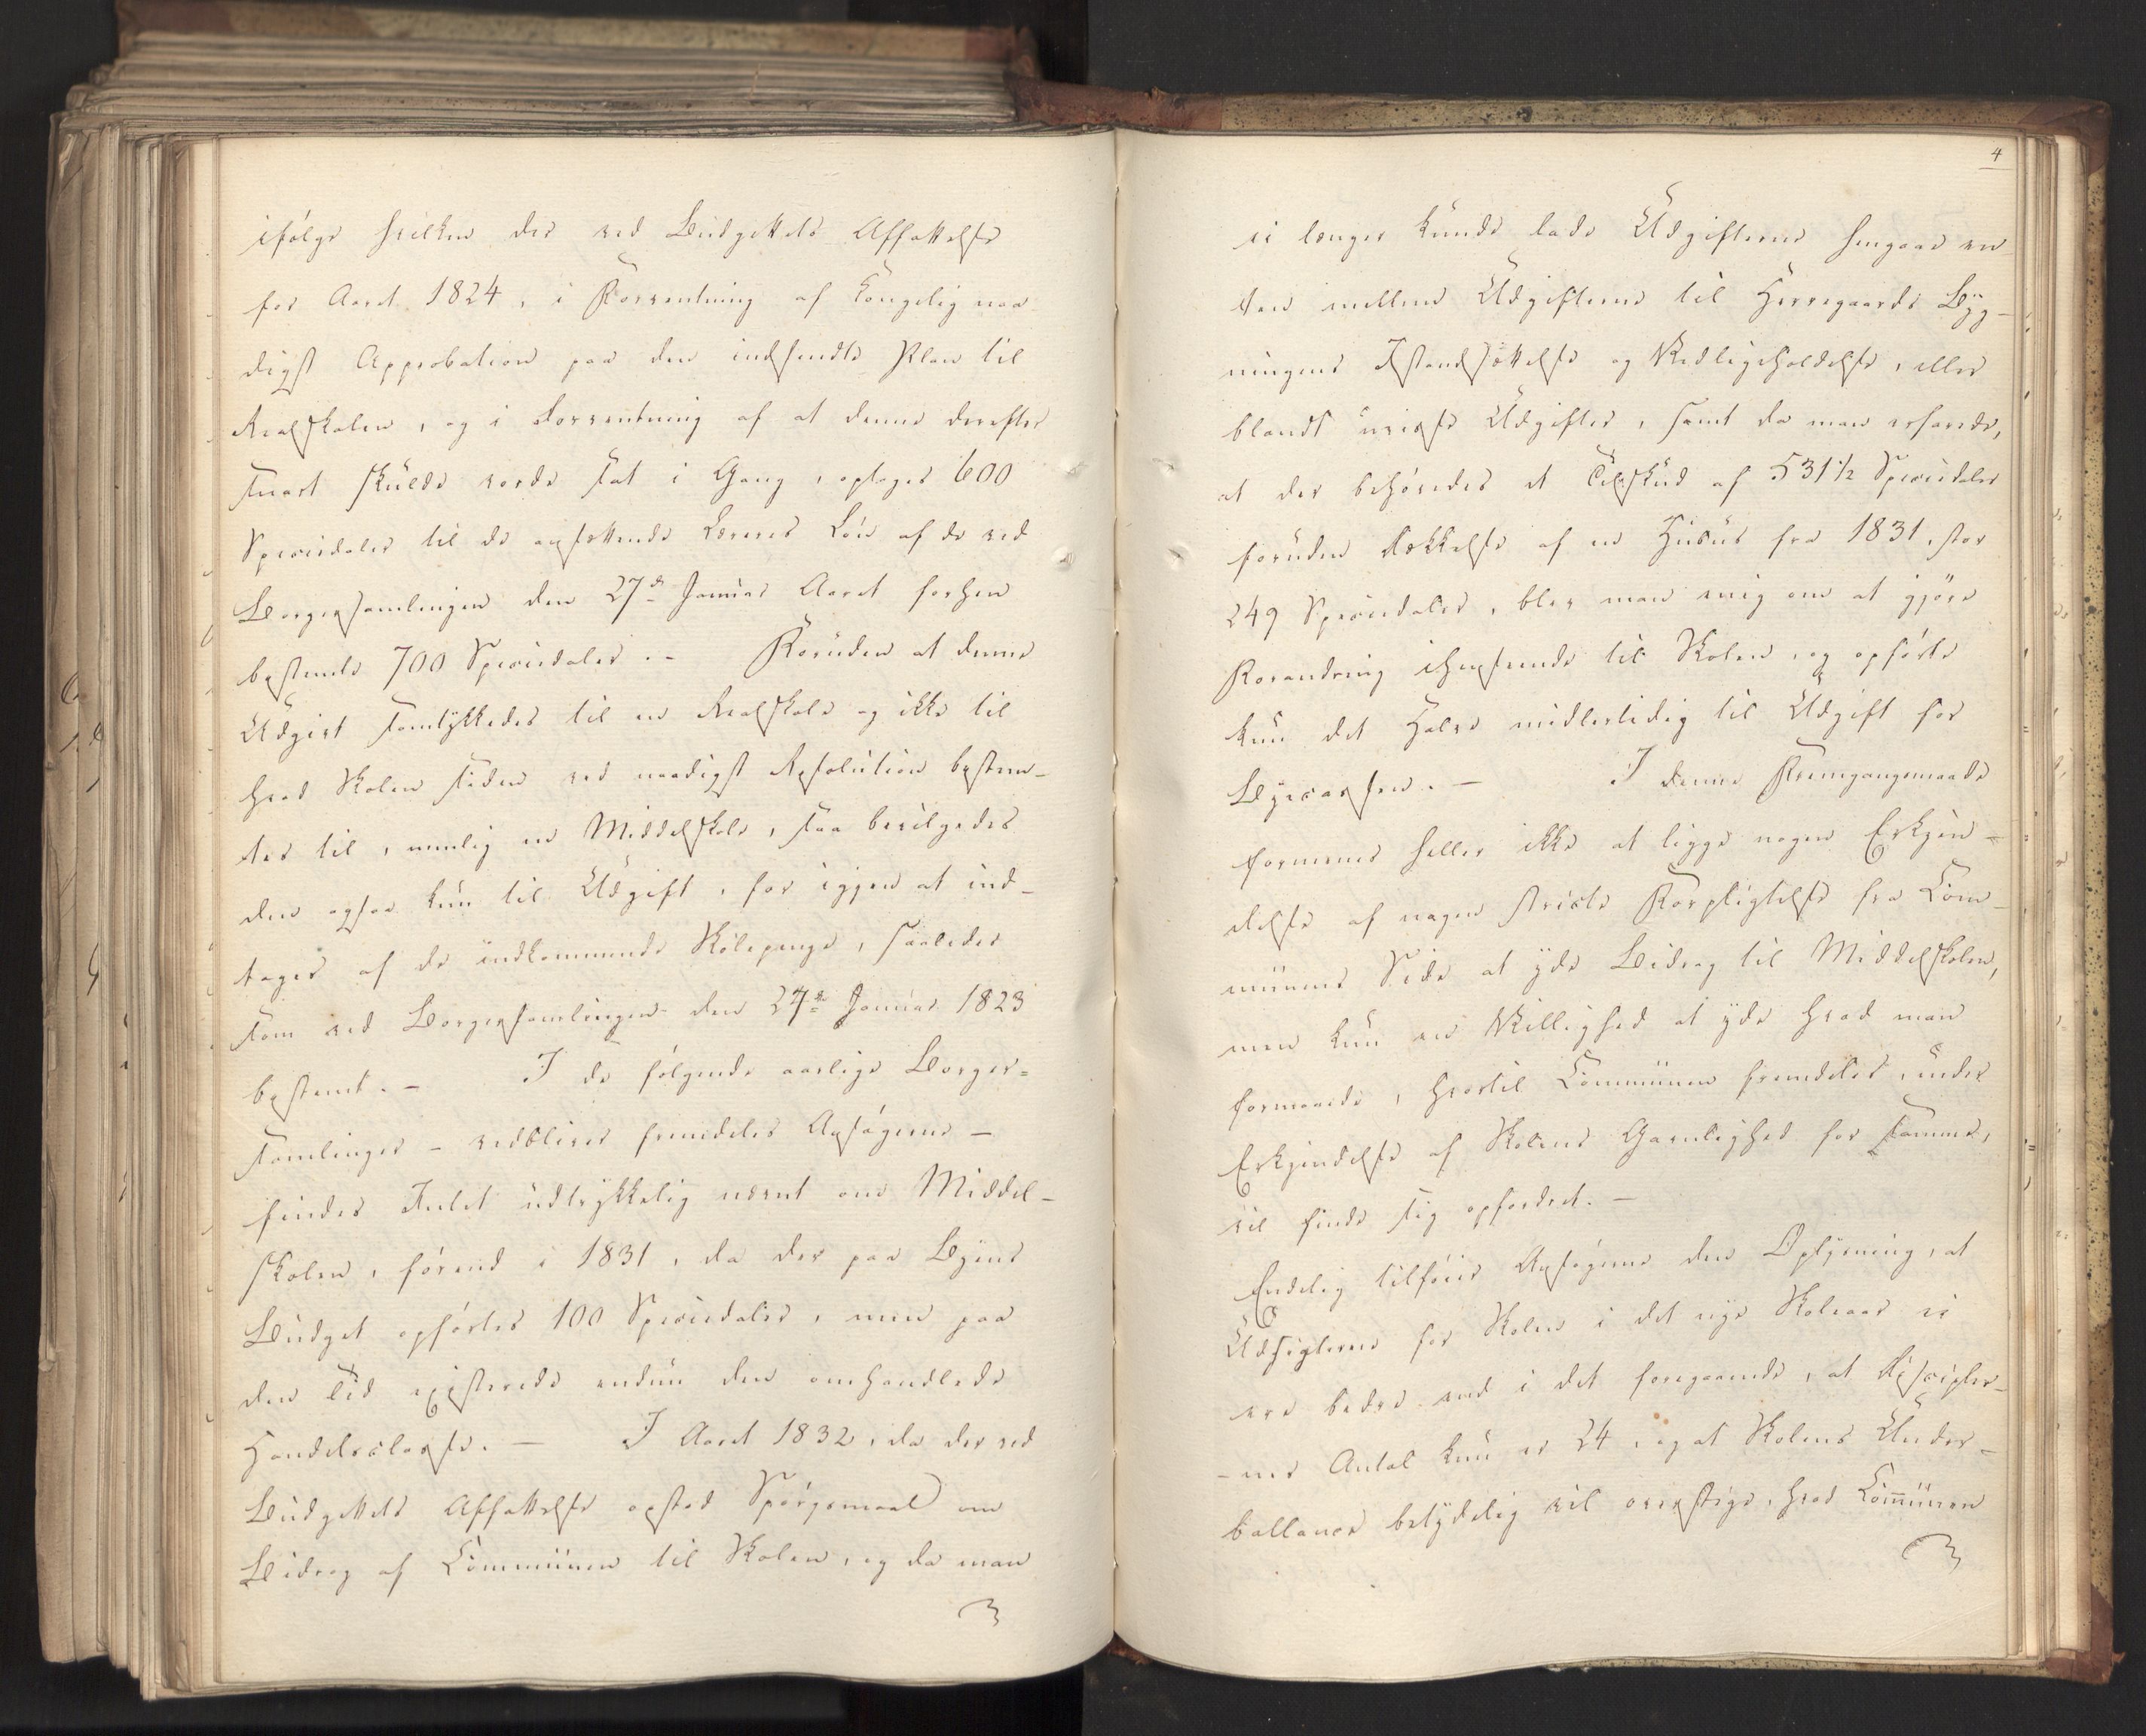 ifølge hvilken der ved Budgettets Affattelse
for Aaret 1824, i Forventning af Kongelig naa-
digst Approbation paa den indsendte Plan til
Realskolen, og i Forventning af at denne derefter
snart skulde vorde sat i Gang, optoges 600
Speciedaler til de ansættende Læreres Løn af de ved
Borgersamlingen den 27de Januar Aaret forhen
bestemte 700 Speciedaler. - Foruden at denne
Udgivt samtykkedes til en Realskole og ikke til
hvad Skolen siden ved naadigst Resolution bestem-
tes til, nemlig en Middelskole, saa bevilgedes
den ogsaa kun til Udgift, for igjen at ind-
tages af de indkommende Skolepenge, saaledes
som ved Borgersamlingen den 27de Januar 1823
bestemt. - I de følgende aarlige Borger-
samlinger - vedbliver fremdeles Ansøgerne -
findes Intet udtrykkelig nævnt om Middel-
skolen, førend i 1831, da der paa Byens
Budget opførtes 100 Speciedaler, men paa
den Tid existerede endnu den omhandlede
Handelsclasse. - I Aaret 1832, da der ved
Budgettets Affattelse opstod Spørgsmaal om
Bidrag af Communen til Skolen, og da man
4
ei længer kunde lade Udgifterne hengaae en-
ten mellem Udgifterne til Herregaards Byg-
ningens Istandsættelse og Vedligeholdelse, eller
blandt uvisse Udgifter, samt da man erfarede,
at der behøvedes et Tilskud af 531½ Speciedaler
foruden Dækkelse af en Hiatus fra 1831, stor
249 Speciedaler, blev man enig om at gjøre
Forandring ihenseende til Skolen, og opførte
kun det Halve midlertidig til Udgift for
Byecassen. - I denne Fremgangsmaade
formenes heller ikke at ligge nogen Erkjen-
delse af nogen stricte Forpligtelse fra Com-
munens Side at yde Bidrag til Middelskolen,
men kun en Villighed at yde hvad man
formaaede, hvortil Communen fremdeles, under
Erkjendelse af Skolens Gavnlighed for samme,
vil finde sig opfordret. -
Endelig tilføies Ansøgerne den Oplysning, at
Udsigterne for Skolen i det nye Skoleaar ei
ere bedre end i det foregaaende, at Discipler-
-nes Antal kun er 24, og at Skolens Under-
ballance betydelig vil overstige, hvad Communen